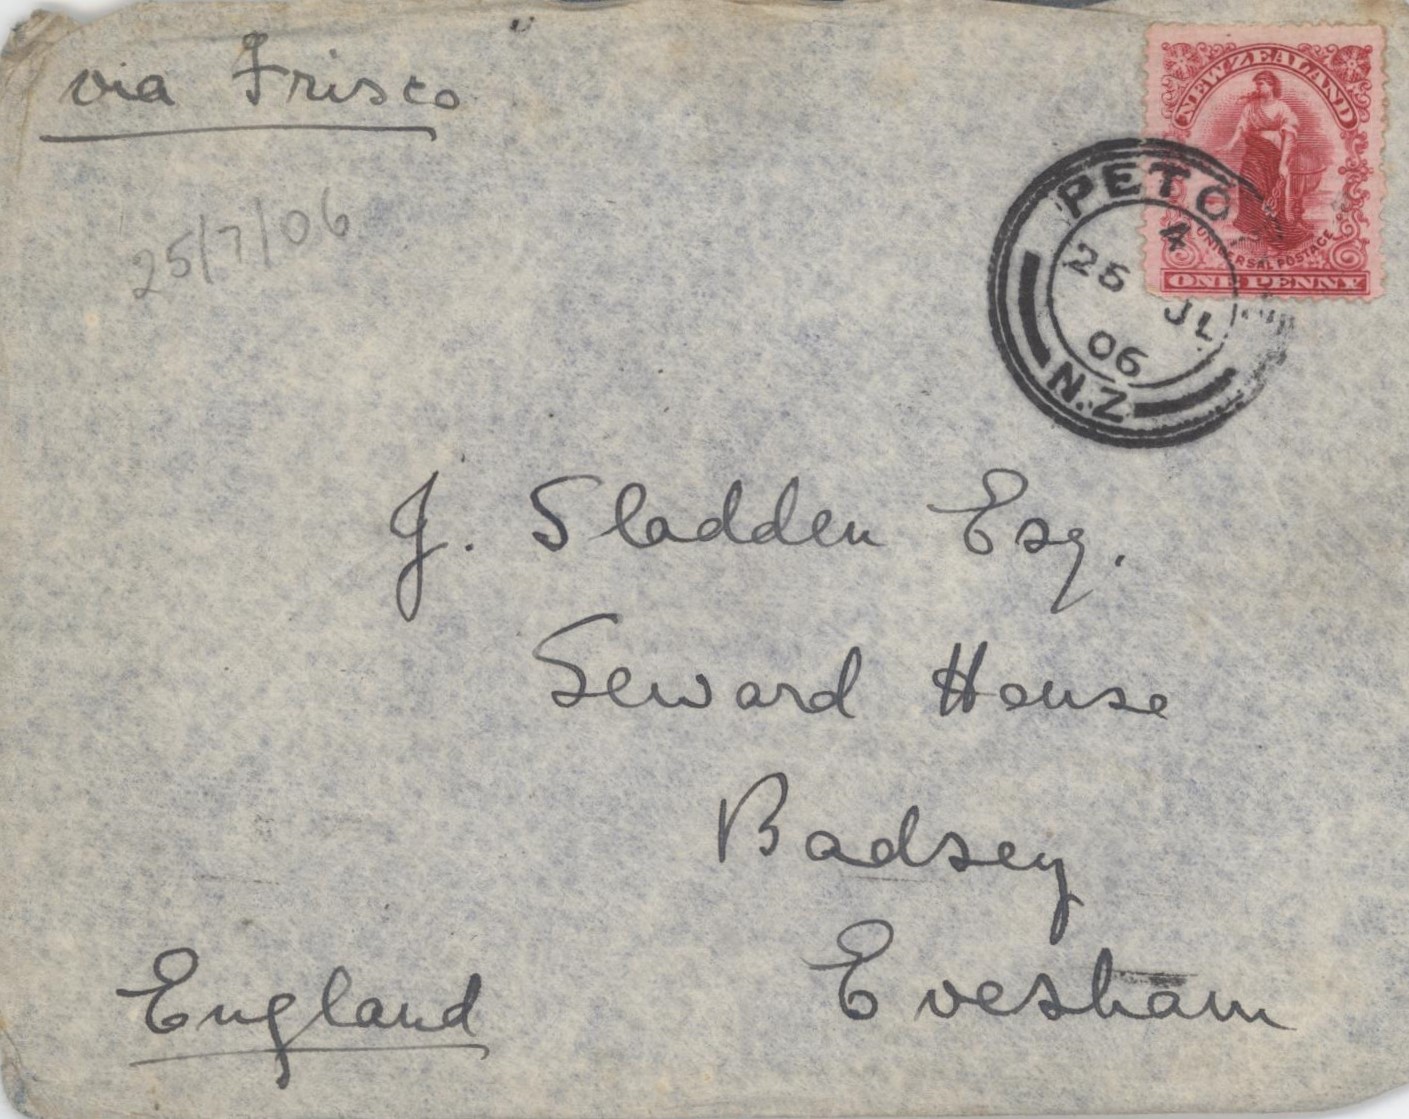 via Frisco
25/7/06
NEW ZEALAND
UNIVERSAL POSTAGE
ONE PENNY
PETO
4
25 JL
06
N.Z
J. Sladden Esq.
Seward House
Badsey
Evesham
England